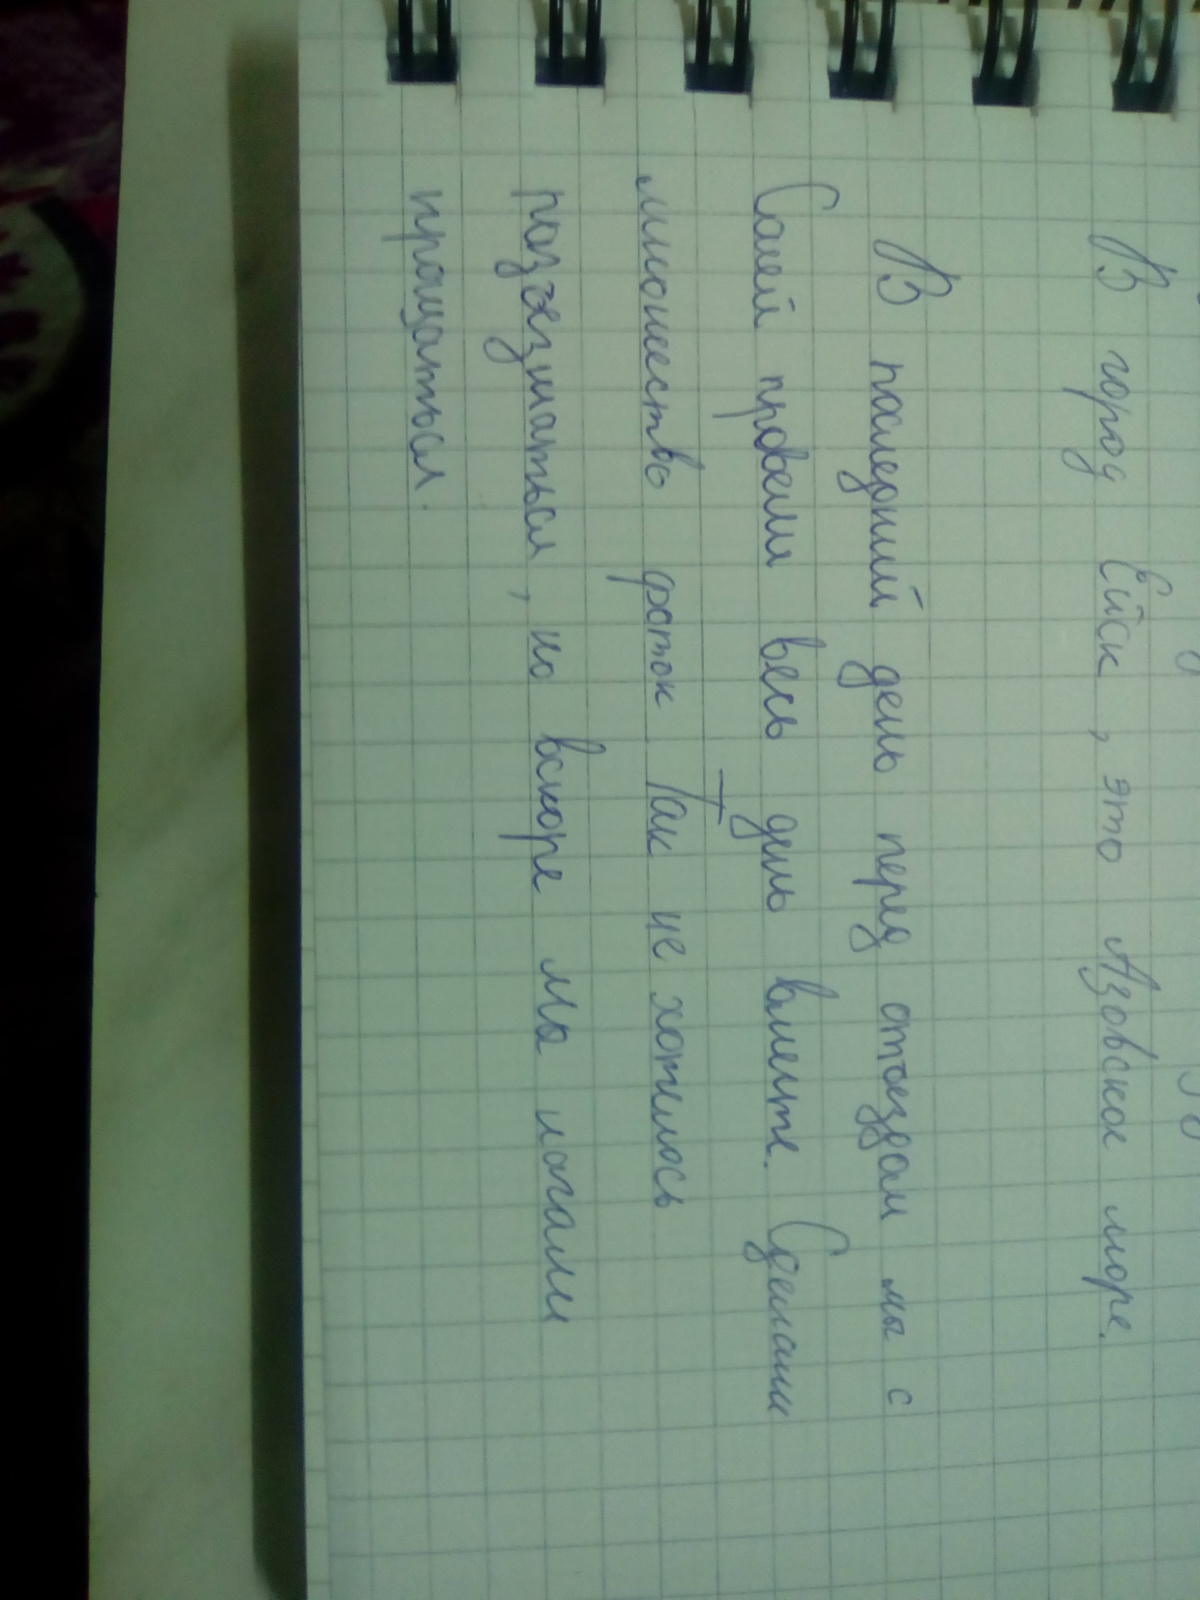 В город Ейск, это Азовское море.
В последний день перед отъездам мы с
Саней провели весь день вместе. Сделали
множество фоток. Так не хотилось
разъезжаться, но вскоре мы начали
прощаться.